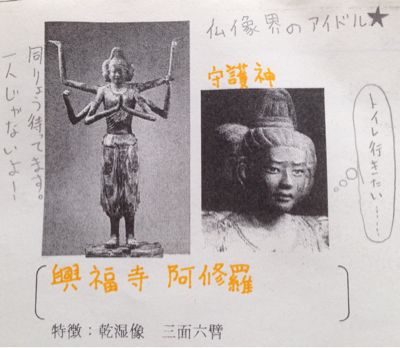 仏像界のアイドル★
守護神
トイレ行きたい……
同りょう待ってます。
一人じゃないよー!
興福寺 阿修羅
特徴：乾湿像 三面六臂